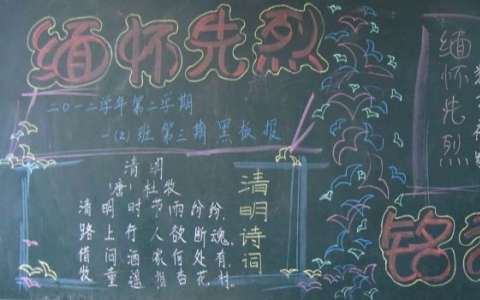 缅怀先烈
二〇一二学年第二学期
一(2)班第三期黑板报
清明
(唐)杜牧
清明时节雨纷纷.
路上行人欲断魂.
借问酒家何处有
牧童遥指杏花村.
清明诗词
缅怀先烈
铭